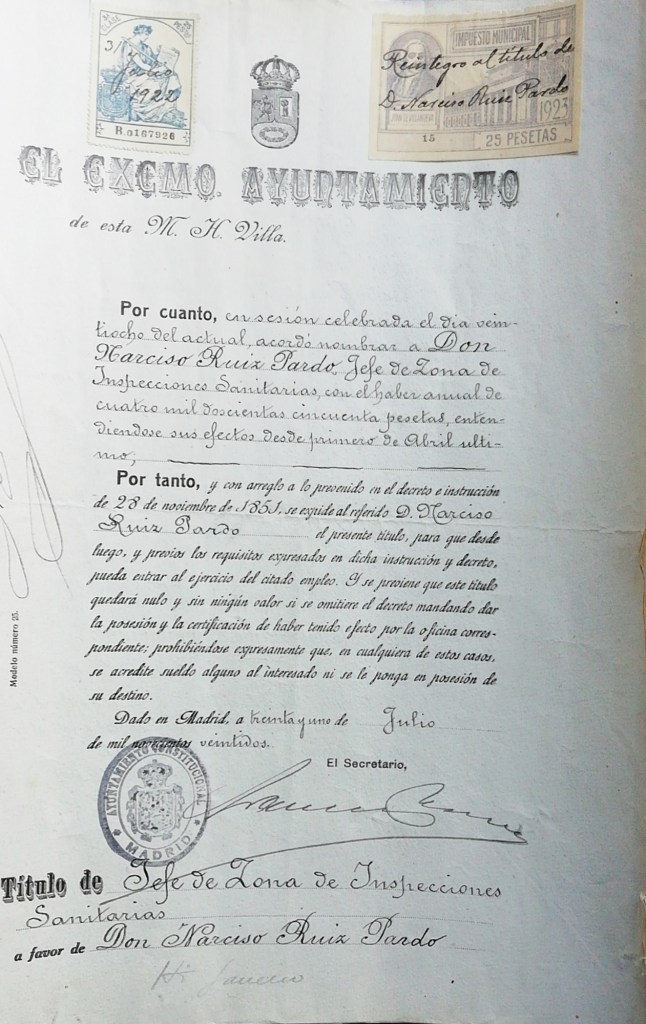 31
Julio
1922
R.0167926
IMPUESTO MUNICIPAL
Reintegro al título de
D. Narciso Ruiz Pardo
1923
15
25 PESETAS
EL EXCMO. AYUNTAMIENTO
de esta M. H. Villa.
Por cuanto, en sesión celebrada el dia vein-
tiocho del actual, acordó nombrar a Don
Narciso Ruiz Pardo, Jefe de Zona de
Inspecciones Sanitarias, con el haber anual de
cuatro mil doscientas cincuenta pesetas, enten-
diendose sus efectos desde primero de Abril ulti-
mo,
Por tanto, y con arreglo a lo prevenido en el decreto e instrucción
de 28 de noviembre de 1851, se expide al referido D. Narciso
Ruiz Pardo el presente título, para que desde
luego, y previos los requisitos expresados en dicha instrucción y decreto,
pueda entrar al ejercicio del citado empleo. Y se previene que este título
quedará nulo y sin ningún valor si se omitiere el decreto mandando dar
la posesión y la certificación de haber tenido efecto por la oficina corres-
pondiente; prohibiéndose expresamente que, en cualquiera de estos casos,
se acredite sueldo alguno al interesado ni se le ponga en posesión de
su destino.
Modelo número 25.
Dado en Madrid, a treinta y uno de Julio
de mil novecientos veintidos.
El Secretario,
AYUNTAMIENTO CONSTITUCIONAL
MADRID
Título de Jefe de Zona de Inspecciones
Sanitarias
a favor de Don Narciso Ruiz Pardo